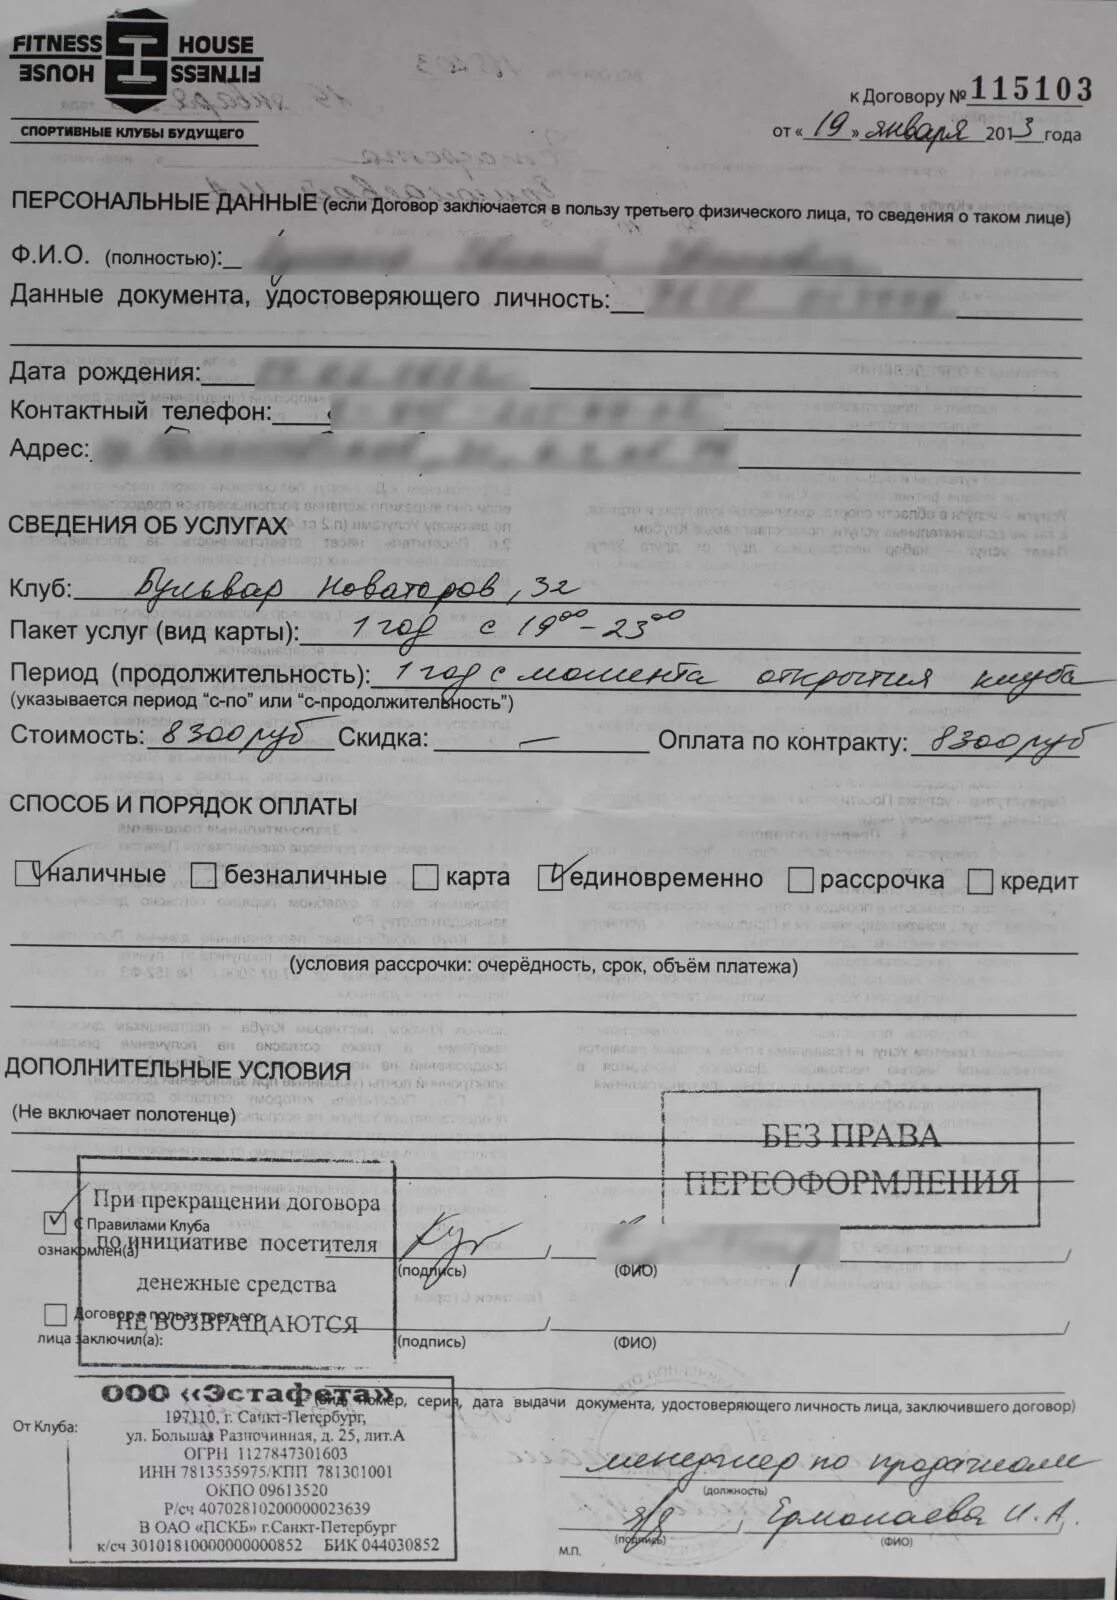 FITNESS HOUSE
FITNESS HOUSE
СПОРТИВНЫЕ КЛУБЫ БУДУЩЕГО
к Договору № 115103
от « 19 » января 2013 года
ПЕРСОНАЛЬНЫЕ ДАННЫЕ (если Договор заключается в пользу третьего физического лица, то сведения о таком лице)
Ф.И.О. (полностью):
Данные документа, удостоверяющего личность:
Дата рождения:
Контактный телефон:
Адрес:
СВЕДЕНИЯ ОБ УСЛУГАХ
Клуб: Бульвар Новаторов, 32
Пакет услуг (вид карты): 1 год с 19 00 - 23 00
Период (продолжительность): 1 год с момента открытия клуба
(указывается период “с-по” или “с-продолжительность”)
Стоимость: 8300 руб Скидка: — Оплата по контракту: 8300 руб
СПОСОБ И ПОРЯДОК ОПЛАТЫ
наличные безналичные карта единовременно рассрочка кредит
(условия рассрочки: очерёдность, срок, объём платежа)
ДОПОЛНИТЕЛЬНЫЕ УСЛОВИЯ
(Не включает полотенце)
БЕЗ ПРАВА
ПЕРЕОФОРМЛЕНИЯ
При прекращении договора
по инициативе посетителя
денежные средства
НЕ ВОЗВРАЩАЮТСЯ
С Правилами Клуба
ознакомлен(а)
(подпись) (ФИО)
Договор в пользу третьего
лица заключил(а):
(подпись) (ФИО)
(вид, номер, серия, дата выдачи документа, удостоверяющего личность лица, заключившего договор)
От Клуба:
ООО «Эстафета»
197110, г. Санкт-Петербург,
ул. Большая Разночинная, д. 25, лит.А
ОГРН 1127847301603
ИНН 7813535975/КПП 781301001
ОКПО 09613520
Р/сч 40702810200000023639
В ОАО «ПСКБ» г.Санкт-Петербург
к/сч 30101810000000000852 БИК 044030852
менеджер по продажам
(должность)
Ермолаева И.А.
(подпись) (ФИО)
М.П.